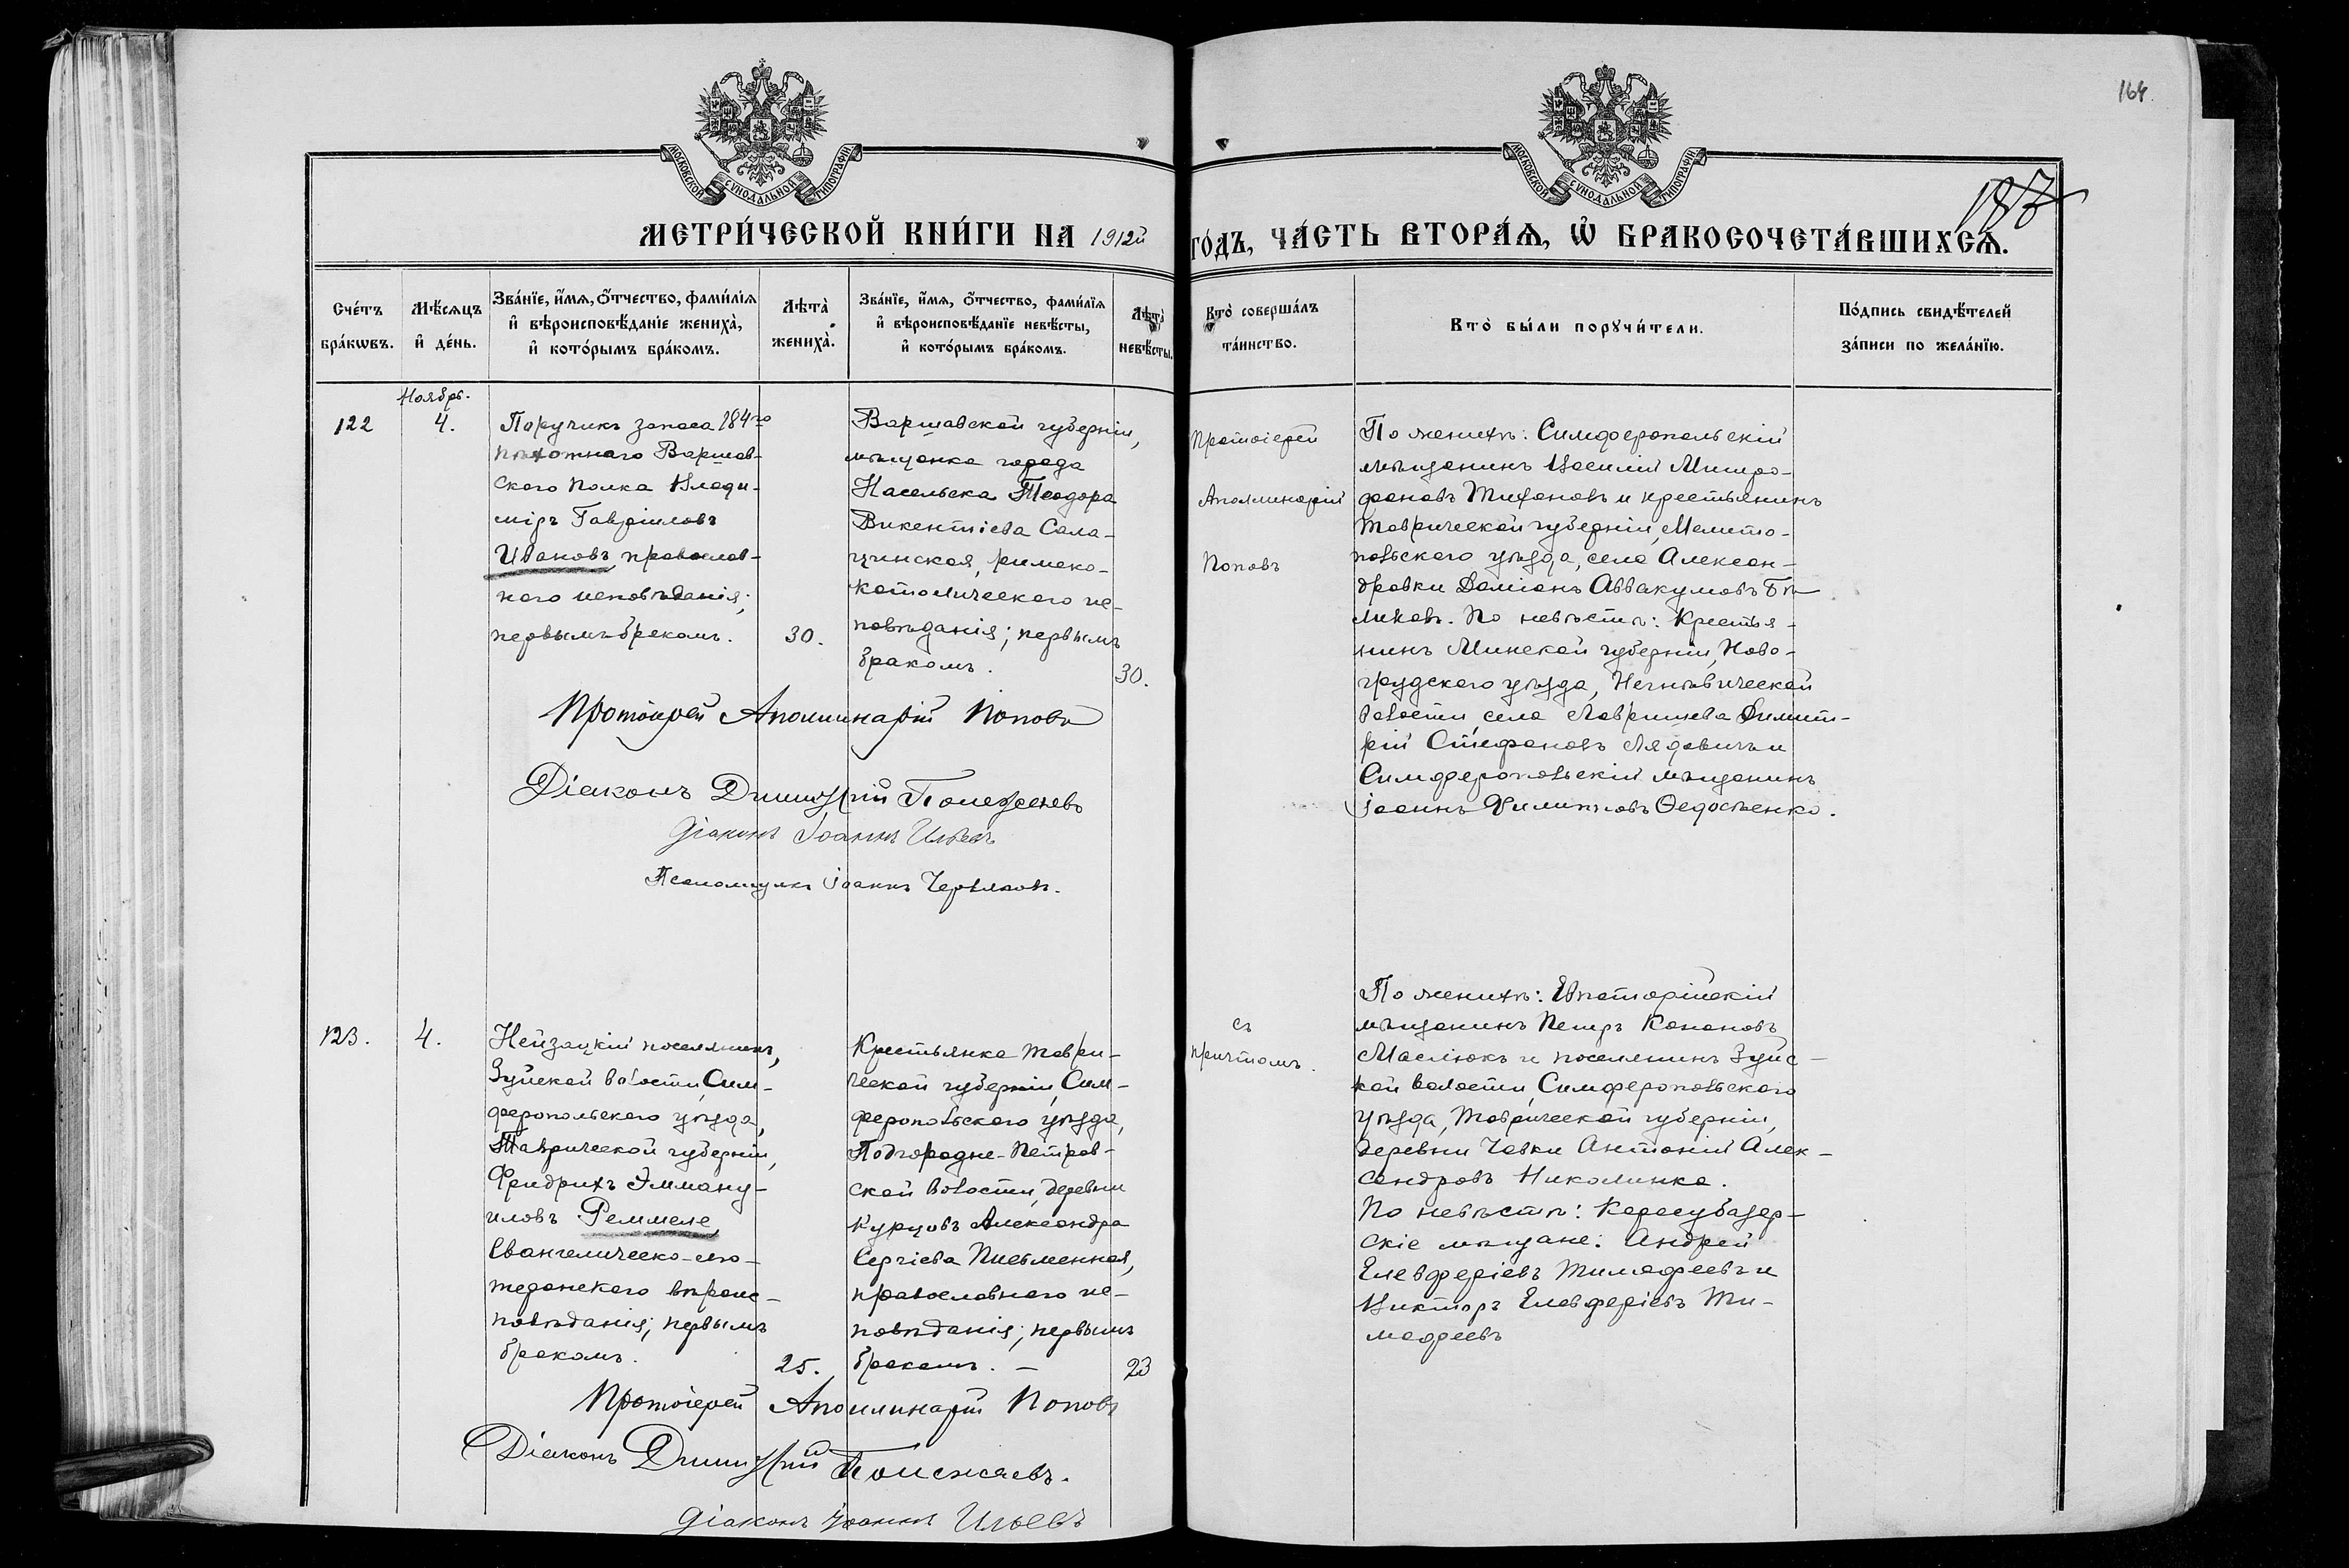 164.
МОСКОВСКОЙ СѴНОДАЛЬНОЙ ТИПОГРАФІИ
МОСКОВСКОЙ СѴНОДАЛЬНОЙ ТИПОГРАФІИ
МЕТРИ́ЧЕСКОЙ КНИ́ГИ НА 1912й
ГО́ДЪ, ЧА́СТЬ ВТОРА́Ѧ, Ѡ҆ БРАКОСОЧЕТА́ВШИХСѦ.
Сче́тъ бра́кѡвъ.
Мѣ́сѧцъ и҆ де́нь.
Зва́нїе, и҆́мѧ, ѻ҆́тчество, фами́лїѧ
и҆ вѣроисповѣ́данїе жениха̀,
и҆ кото́рымъ бра́комъ.
Лѣта̀ жениха̀.
Зва́нїе, и҆́мѧ, ѻ҆́тчество, фами́лїѧ
и҆ вѣроисповѣ́данїе невѣ́сты,
и҆ кото́рымъ бра́комъ.
Лѣта̀ невѣ́сты.
Кто̀ соверша́лъ та́инство.
Кто̀ бы́ли порꙋчи́тели.
По́дпись свидѣ́телей
за́писи по жела́нїю.
Ноябрь.
122
4.
Поручикъ запаса 184го
пѣхотнаго Варшав-
скаго полка Влади-
міръ Гавріиловъ
Ивановъ, православ-
наго исповѣданія;
первымъ бракомъ.
30.
Варшавской губерніи,
мѣщанка города
Насельска Теодора
Викентіева Сала-
цинская, римско-
католическаго ис-
повѣданія; первымъ
бракомъ.
30.
Протоіерей
Аполлинарій
Поповъ
По женихѣ: Симферопольскій
мѣщанинъ Василій Митро-
фановъ Тихановъ и крестьянинъ
Таврической губерніи, Мелито-
польскаго уѣзда, села Алексан-
дровки Даміанъ Аввакумовъ Бѣ-
ликовъ. По невѣстѣ: Крестья-
нинъ Минской губерніи, Ново-
грудскаго уѣзда, Негнѣвической
волости, села Лавришева Димит-
рій Стефановъ Лядовичъ и
Симферопольскій мѣщанинъ
Іоаннъ Филипповъ Ѳедосѣенко.
Протоіерей Аполлинарій Поповъ
Діаконъ Димитрій Полежаевъ
Діаконъ Іоаннъ Ильевъ
Псаломщикъ Іоаннъ Червяковъ.
123.
4.
Нейзацкій поселянинъ,
Зуйской волости, Сим-
феропольскаго уѣзда,
Таврической губерніи,
Фридрихъ Эммануи-
иловъ Реммеле,
Евангелическо-лю-
теранскаго вѣроис-
повѣданія; первымъ
бракомъ.
25.
Крестьянка Таври-
ческой губерніи, Сим-
феропольскаго уѣзда,
Подгородне-Петров-
ской волости, деревни
Курцовъ Александра
Сергіева Письменная,
православнаго ис-
повѣданія; первымъ
бракомъ. —
23
съ
причтомъ.
По женихѣ: Евпаторійскій
мѣщанинъ Петръ Канановъ
Маслюкъ и поселянинъ Зуйс-
кой волости, Симферопольскаго
уѣзда, Таврической губерніи,
деревни Чавки Антоній Алек-
сандровъ Николинка.
По невѣстѣ: Карасубазар-
скіе мѣщане: Андрей
Елевферіевъ Тимофеевъ и
Викторъ Елевферіевъ Ти-
мофеевъ
Протоіерей Аполлинарій Поповъ
Діаконъ Димитрій Полежаевъ.
Діаконъ Іоаннъ Ильевъ